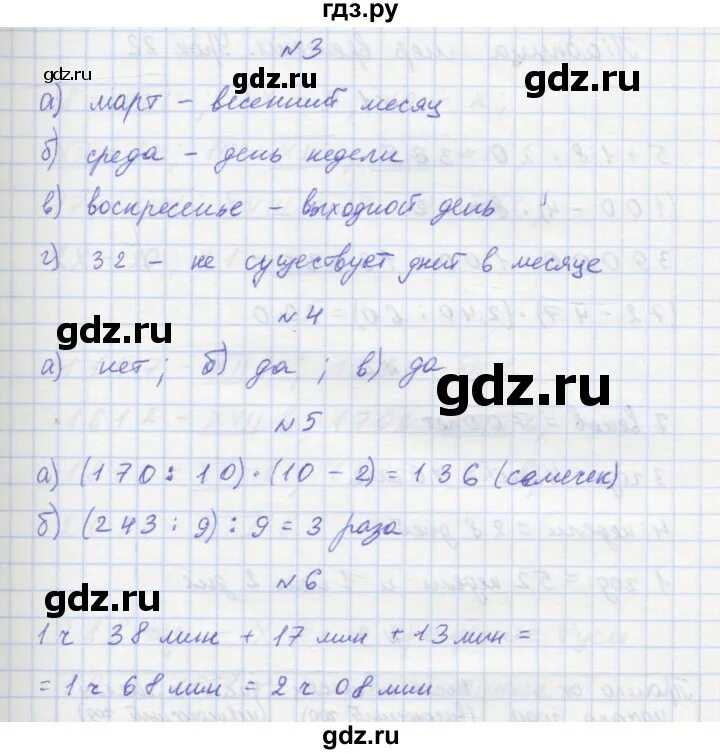 гдз.ру
№3
gdz.ru gdz.ru
а) март – весенний месяц
б) среда – день недели
в) воскресенье – выходной день
г) 32 – не существует дней в месяце
№4
gdz.ru
а) нет; б) да; в) да
gdz.ru
№5
а) (170 : 10) · (10 – 2) = 136 (семечек)
б) (243 : 9) : 9 = 3 раза
№6
gdz.ru
1 ч 38 мин + 17 мин + 13 мин =
= 1 ч 68 мин = 2 ч 08 мин
gdz.ru